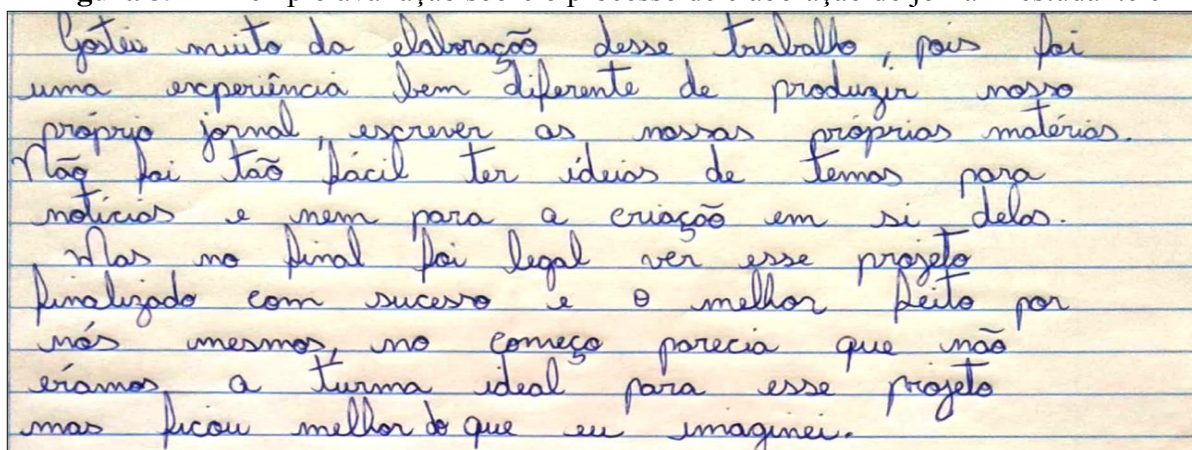 Gostei muito da elaboração desse trabalho, pois foi
uma experiência bem diferente de produzir nosso
próprio jornal, escrever as nossas próprias matérias.
Não foi tão fácil ter ideias de temas para
notícias e nem para a criação em si delas.
Mas no final foi legal ver esse projeto
finalizado com sucesso e o melhor feito por
nós mesmos, no começo parecia que não
eramos a turma ideal para esse projeto
mas ficou melhor do que eu imaginei.